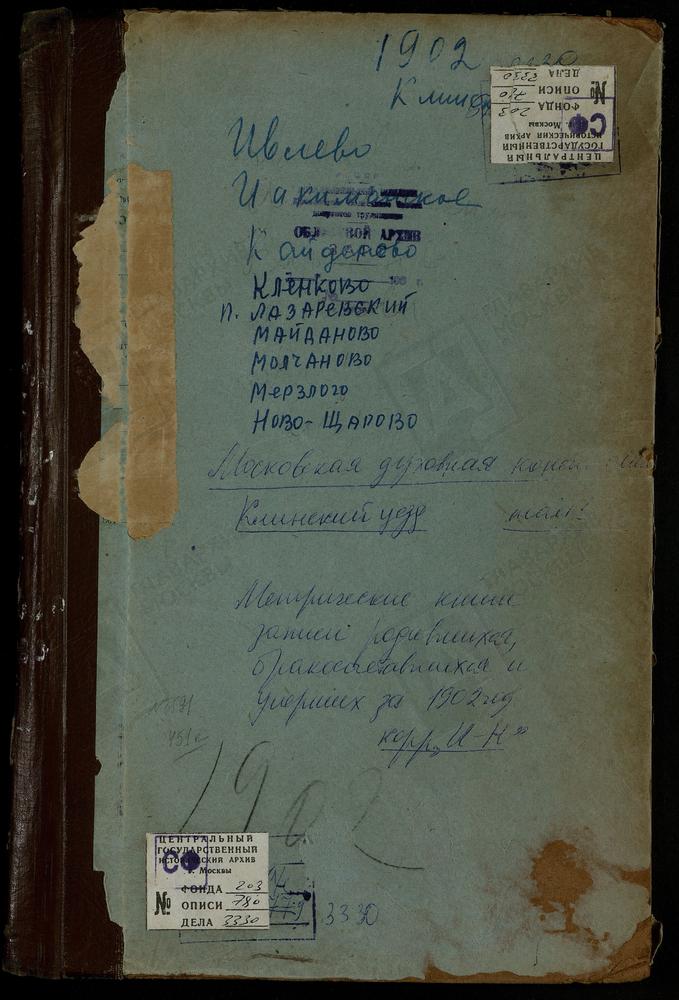 1902
3330
Клинс
№
ДЕЛА 3330
ОПИСИ 780
ФОНДА 203
г. Москвы
ИСТОРИЧЕСКИЙ АРХИВ
ГОСУДАРСТВЕННЫЙ
ЦЕНТРАЛЬНЫЙ
СФ
Ивлево
Иакиманское
ОБЛ НОЙ АРХИВ
Кайданово
КЛЕНКОВО
П. ЛАЗАРЕВСКИЙ
МАЙДАНОВО
МОЛЧАНОВО
МЕРЗЛОГО
НОВО-ЩАПОВО
Московская духовная
Клинский уезд
Метрические книги
записи родившихся,
бракосочетавшихся и
умерших за 1902 год
корр. „И-Н"
1902
ЦЕНТРАЛЬНЫЙ
ГОСУДАРСТВЕННЫЙ
ИСТОРИЧЕСКИЙ АРХИВ
г. Москвы
СФ
№
ФОНДА 203
ОПИСИ 780
ДЕЛА 3330
3330